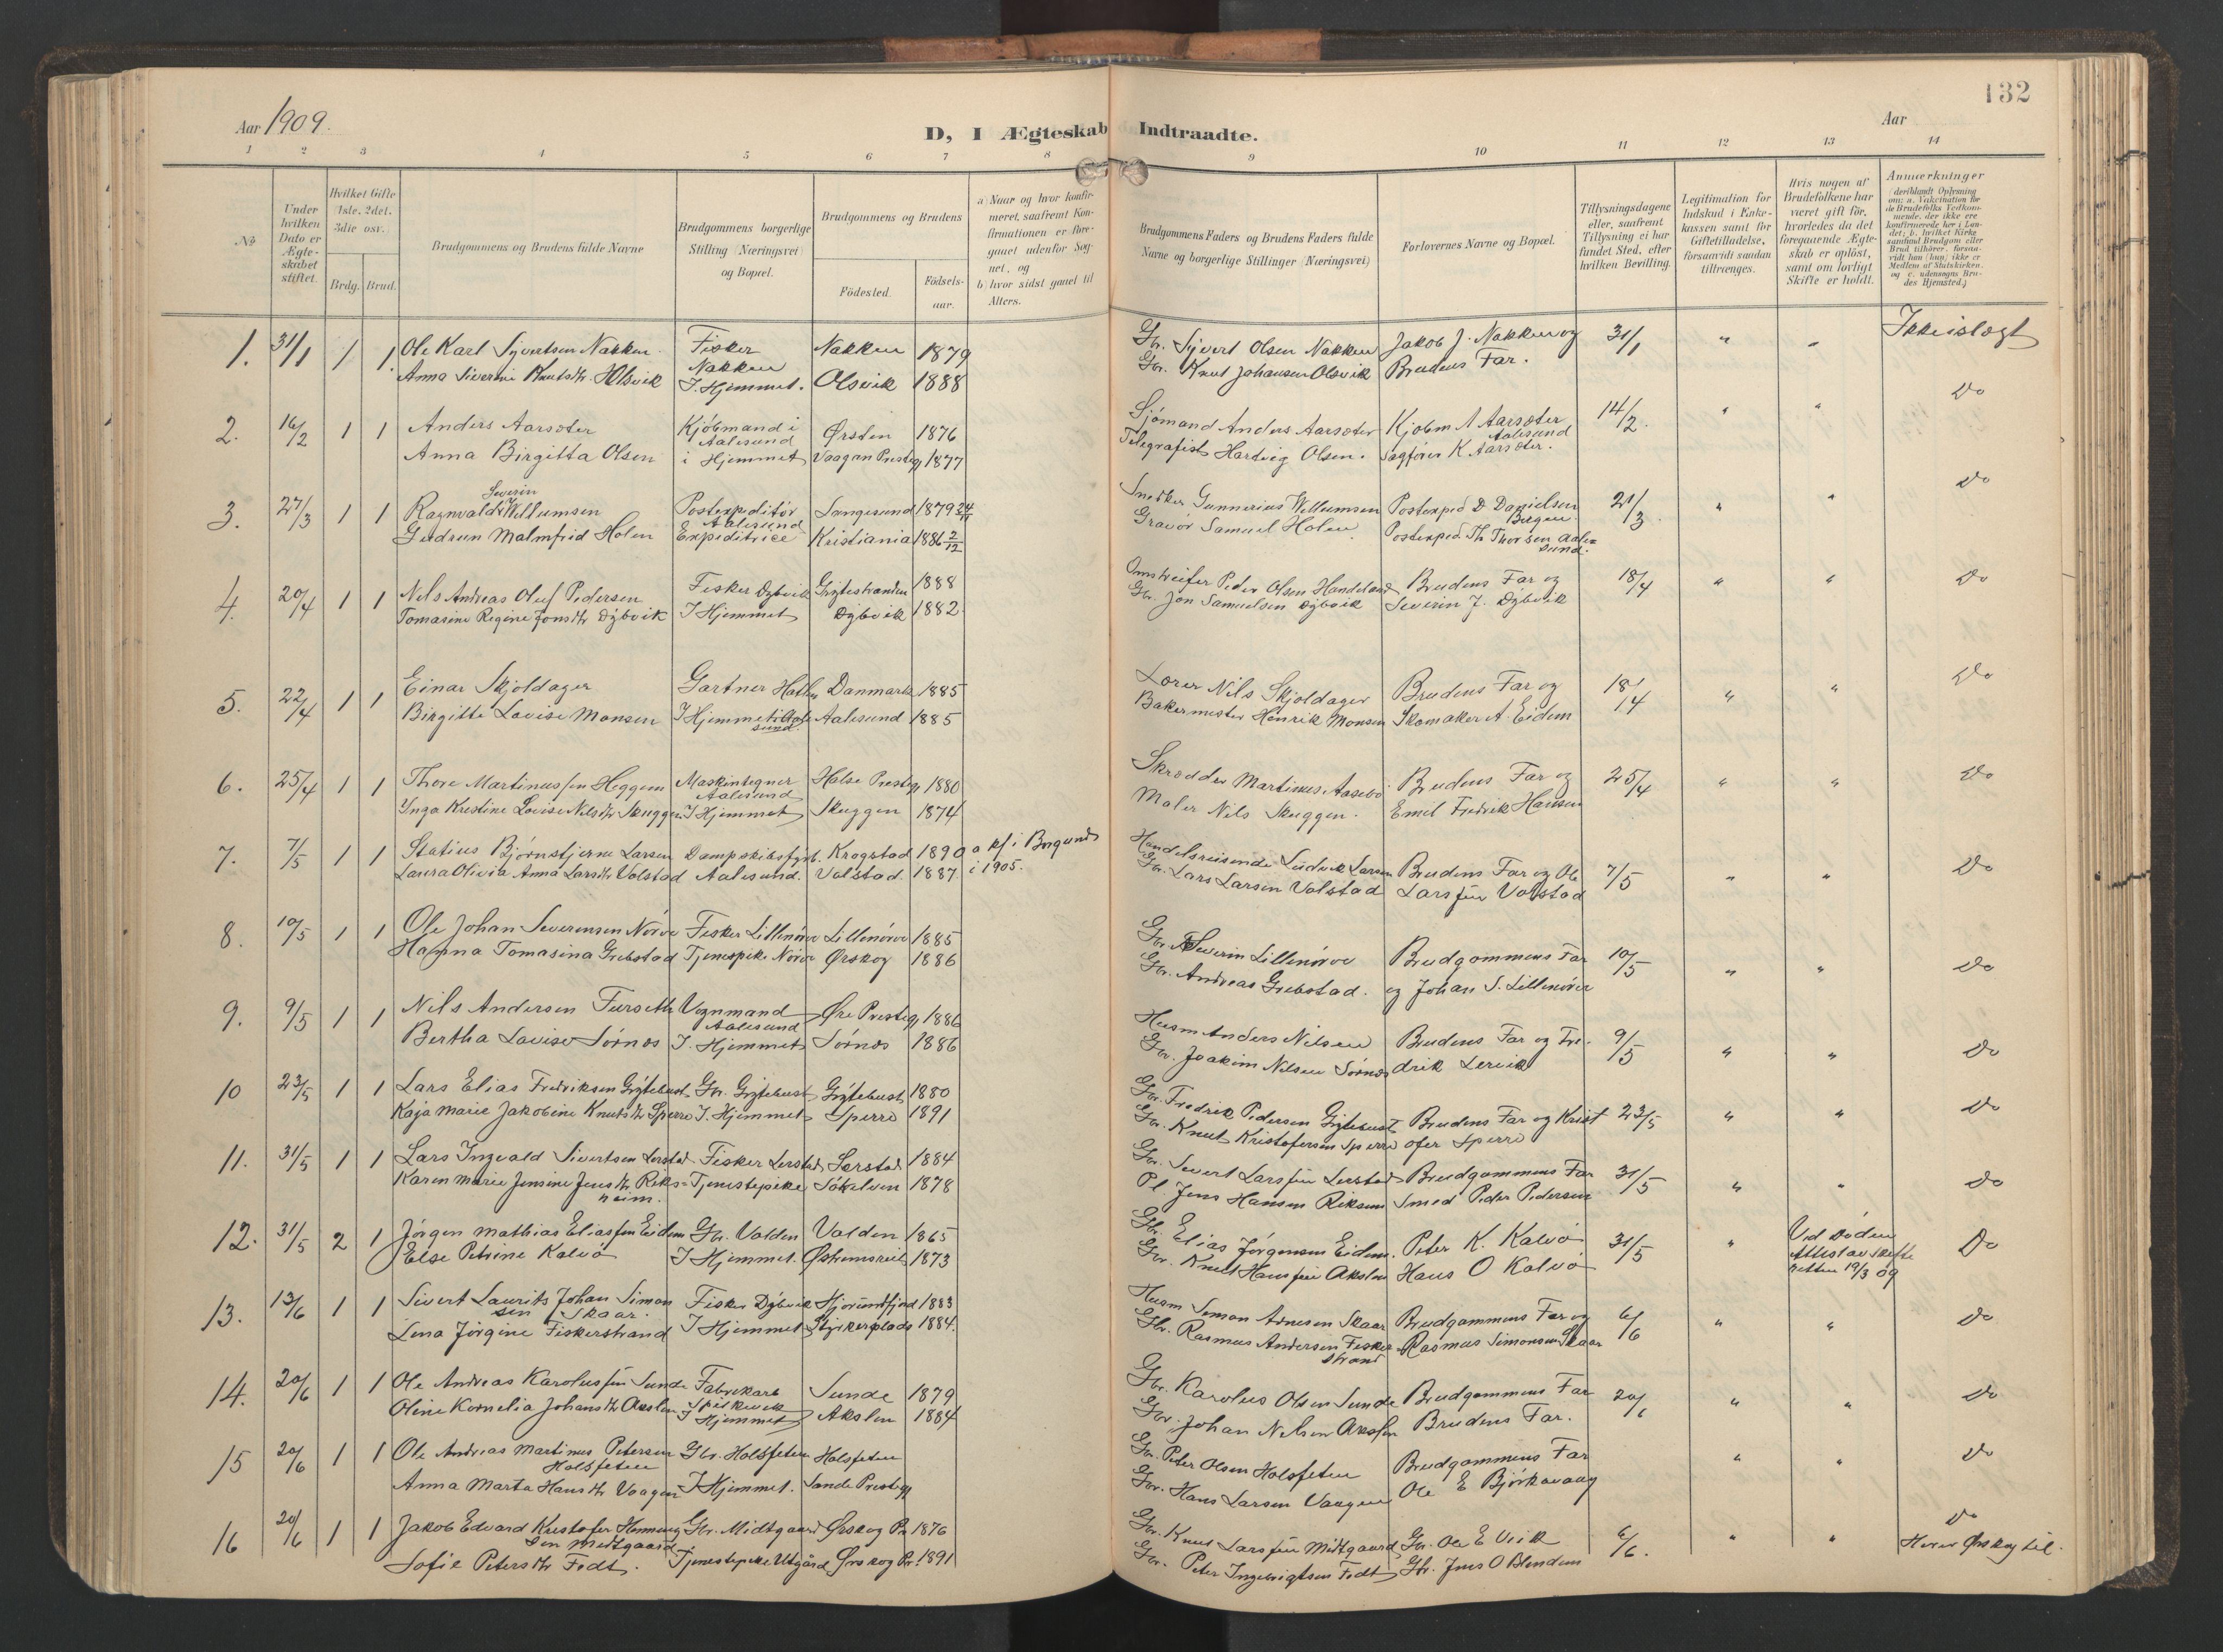 132
Aar 1909.
D, I Ægteskab Indtraadte.
Aar
1 2 3 4 5 6 7 8 9 10 11 12 13 14
№
Under hvilken Dato er Ægteskabet stiftet.
Hvilket Gifte (1ste, 2det, 3die osv.
Brdg. Brud.
Brudgommens og Brudens fulde Navne
Brudgommens borgerlige Stilling (Næringsvei) og Bopæl.
Brudgommens og Brudens
Födested.
Födselsaar.
a) Naar og hvor konfirmeret, saafremt Konfirmationen er foregaaet udenfor Sognet, og
b) hvor sidst gaaet til Alters.
Brudgommens Faders og Brudens Faders fulde Navne og borgerlige Stillinger (Næringsvei)
Forlovernes Navne og Bopæl.
Tillysningsdagene eller, saafremt Tillysning ei har fundet Sted, efter hvilken Bevilling.
Legitimation for Indskud i Enkekassen samt for Giftetilladelse, forsaavidt saadan tiltrænges.
Hvis nogen af Brudefolkene har været gift för, hvorledes da det foregaaende Ægteskab er oplöst, samt om lovligt Skifte er holdt.
Anmærkninger (deriblandt Oplysning om: a. Vakcination for de Brudefolks Vedkommende, der ikke ere konfirmerede her i Landet; b. hvilket Kirkesamfund Brudgom eller Brud tilhörer, forsaavidt han (hun) ikke er Medlem af Statskirken, og c. udensogns Brudes Hjemsted.)
1. 31/1 1 1 Ole Karl Syvertsen Nakken Fisker Nakken Nakken 1879 Gbr. Syvert Olsen Nakken Jakob J. Nakken og 31/1 " " Ikke i slægt
Anna Siverine Knutsdtr. Olsvik I Hjemmet. Olsvik 1888 Gbr. Knut Johansen Olsvik Brudens Far.
2. 16/2 1 1 Anders Aarsæter Kjøbmand i Aalesund Ørsten 1876 Sjömand Anders Aarsæter Kjøbm A Aarsæter Aalesund 14/2. " " Do
Anna Birgitta Olsen i Hjemmet Vaagan Prestegj 1877 Telegrafist Hartvig Olsen. Sagförer K Aarsæter.
3. 27/3 1 1 Ragnvald Severin Wellumsen Postexpeditör Aalesund Langesund 1879 24/11 Snedker Gunnerius Wellumsen Postexped D Danielsen Bergen 21/3. " " Do
Gudrun Malmfrid Holen Expeditrice Kristiania 1886 2/12 Gravör Samuel Holen. Postexped. Th Thorsen Aalesund.
4. 20/4 1 1 Nils Andreas Oluf Pedersen Fisker Dybvik Grytestranden 1888 Omstreifer Peder Olsen Handeland Brudens Far og 18/4 " " Do
Tomasine Regine Jonsdtr Dybvik I Hjemmet Dybvik 1882 Gbr. Jon Samuelsen Dybvik Severin J. Dybvik
5. 22/4 1 1 Einar Skjoldager Gartner Danmark 1885 Lærer Nils Skjoldager Brudens Far og 18/4 " " Do
Birgitte Lovise Monsen I Hjemmet i Aalesund. Aalesund 1885 Bakermester Henrik Monsen Skomaker A. Eidem
6. 25/4 1 1 Thore Martinussen Heggem Maskintegner Aalesund Halse Prestegj 1880 Skrædder Martinus Aasebø Brudens Far og 25/4 " " Do
Inga Kristine Lovise Nilsdtr Skuggen I Hjemmet Skuggen 1874 Maler Nils Skuggen. Emil Fredrik Hansen
7. 7/5 1 1 Statius Björnstjerne Larsen Dampskibsfyrb. Krogstad 1890 a kf i Borgund Handelsreisende Ludvik Larsen Brudens Far og Ole 7/5 " " Do
Laura Olivia Anna Larsdtr Valstad Aalesund. Valstad. 1887. i 1905. Gbr. Lars Larsen Valstad Larssen Valstad
8. 10/5 1 1 Ole Johan Severinsen Nörve Fisker Lillenörve Lillenörve 1885 Gbr. Severin Lillenörve Brudgommens Far 10/5 " " Do
Hanna Tomasina Grebstad Tjenespike Nörve Ørskog 1886 Gbr. Andreas Grebstad. og Johan S. Lillenörve
9. 9/5 1 1 Nils Andersen Furseth Vognmand Aalesund Øre Prestegj 1886 Husm Anders Nilsen Brudens Far og Fre- 9/5 " " Do
Bertha Lovise Sörnes I. Hjemmet Sörnes 1886 Gbr. Joakim Nilsen Sörnes drik Lervik
10 23/5 1 1 Lars Elias Fredriksen Grytebust Gbr. Grytebust Grytebust 1880 Gbr. Fredrik Pedersen Grytebust Brudens Far og Krist 23/5 " " Do
Kaja Marie Jakobine Knutsdtr Sperre I. Hjemmet Sperre 1891 Gbr. Knut Kristofersen Sperre ofer Sperre
11. 31/5 1 1 Lars Ingvald Sivertsen Lerstad Fisker Lerstad Lerstad 1884 Gbr. Severt Larssen Lerstad Brudgommens Far 31/5 " " Do
Karen Marie Jensine Jensdtr Reksheim. Tjenestepike Sökelven 1878 Pl. Jens Hansen Riksem Smed Peder Pedersen
12. 31/5 2 1 Jörgen Mathias Eliassen Eidem Gbr. Valden Valden 1865 Gbr. Elias Jörgensen Eidem. Peter K. Kalvö 31/5 " Ved Döden Attest av Skifteretten 19/3 09 Do
Else Petrine Kalvö I Hjemmet. 1873 Gbr. Knut Hanssen Akslen Hans O Kalvö
13. 13/6 1 1 Sivert Laurits Johan Simonsen Skaar. Fisker Dybvik Hjörundfjord 1883 Husm Simon Arnesen Skaar Brudgommens Far og 6/6 " " Do
Lina Jörgine Fiskerstrand I Hjemmet 1884. Gbr. Rasmus Andersen Fiskerstrand Rasmus Simonsen Skaar
14. 20/6 1 1 Ole Andreas Karolussen Sunde Fabrikarb Spjelkevik Sunde 1879 Gbr. Karolus Olsen Sunde Brudgommens Far 20/6 " " Do
Oline Kornelia Johansdtr Akslen I Hjemmet Akslen 1884 Gbr. Johan Nilsen Akslen Brudens Far.
15 20/6 1 1 Ole Andreas Martinus Petersen Holsfeten Gbr. Holsfeten Holsfeten Gbr. Peter Olsen Holsfeten Brudgommens Far " " Do
Anna Marta Hansdtr Vaagen I Hjemmet. Sande Prestegj Gbr. Hans Larsen Vaagen Ole E Björkavaag
16 20/6 1 1 Jakob Edvard Kristofer Henningsen Midtgaard Gbr. Midtgaard Ørskog Pr. 1876 Gbr. Knut Larssen Midtgaard Gbr. Ole E Vik 6/6. " " Do
Sofie Petersdtr Fedt. Tjenestepike Utgård Ørskog Pr. 1891 Gbr. Peter Ingebrigtsen Fedt Gbr. Jens O Blindem Hører Ørskog til.